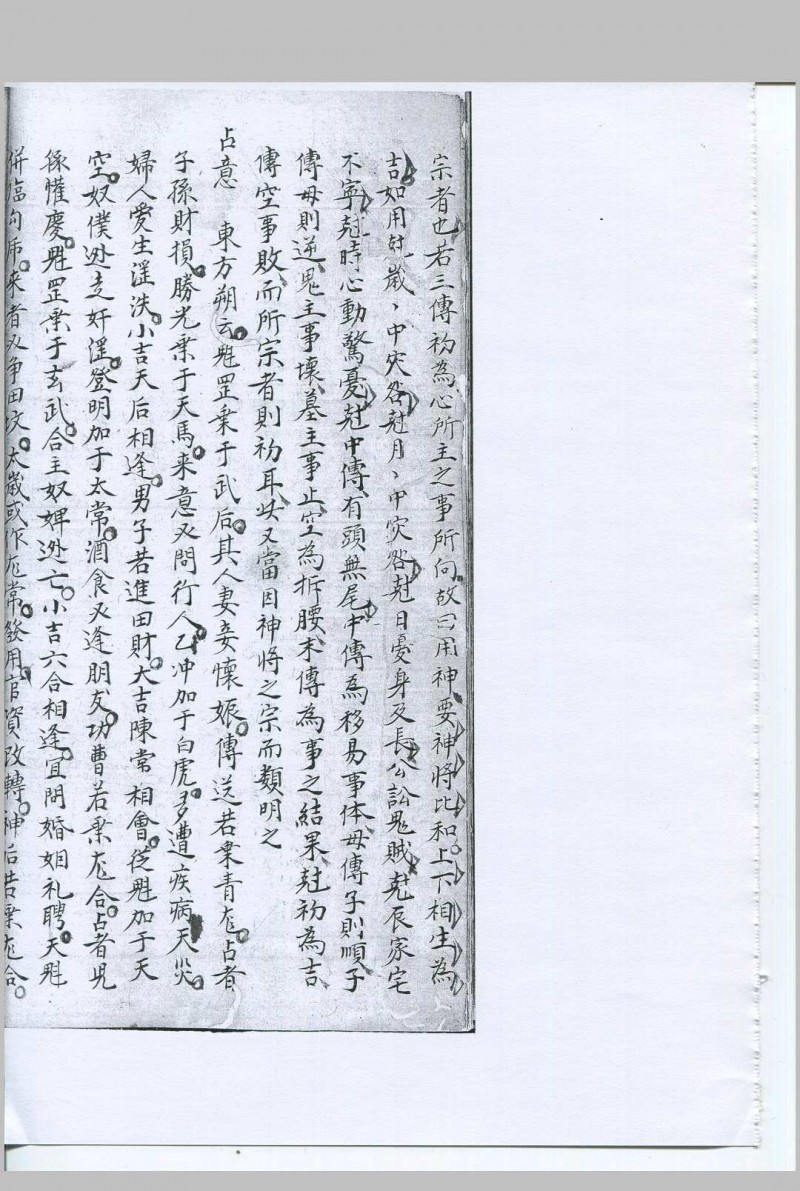 宗者也若三傳初為心所主之事所向故曰用神要神將比和上下相生為
吉如用尅歲、中災咎尅月、中灾咎尅日憂身及長公訟鬼賊尅辰家宅
不寧尅時心動驚憂尅中傳有頭無尾中傳為移易事体母傳子則順子
傳母則逆鬼主事壞墓主事止空為折腰末傳為事之結果尅初為吉
傳空事敗而所宗者則初耳此又當因神將之宗而類明之
占意　東方朔云魁罡乗于武后其人妻妾懷娠傳送若乗青龙占者
子孫財損勝光乗于天馬来意必問行人乙冲加于白虎多遭疾病天災
婦人愛生淫泆小吉天后相逢男子若進田財大吉陳常相會從魁加于天
空奴僕迯走奸淫登明加于太常酒食必逢朋友功曹若乗龙合占者児
孫懽慶魁罡乗于玄武合主奴婢迯亡小吉六合相逢宜問婚姻礼聘天魁
併臨勾虎来者必争田坟太歲或作龙常發用官資改轉神后若乗龙合